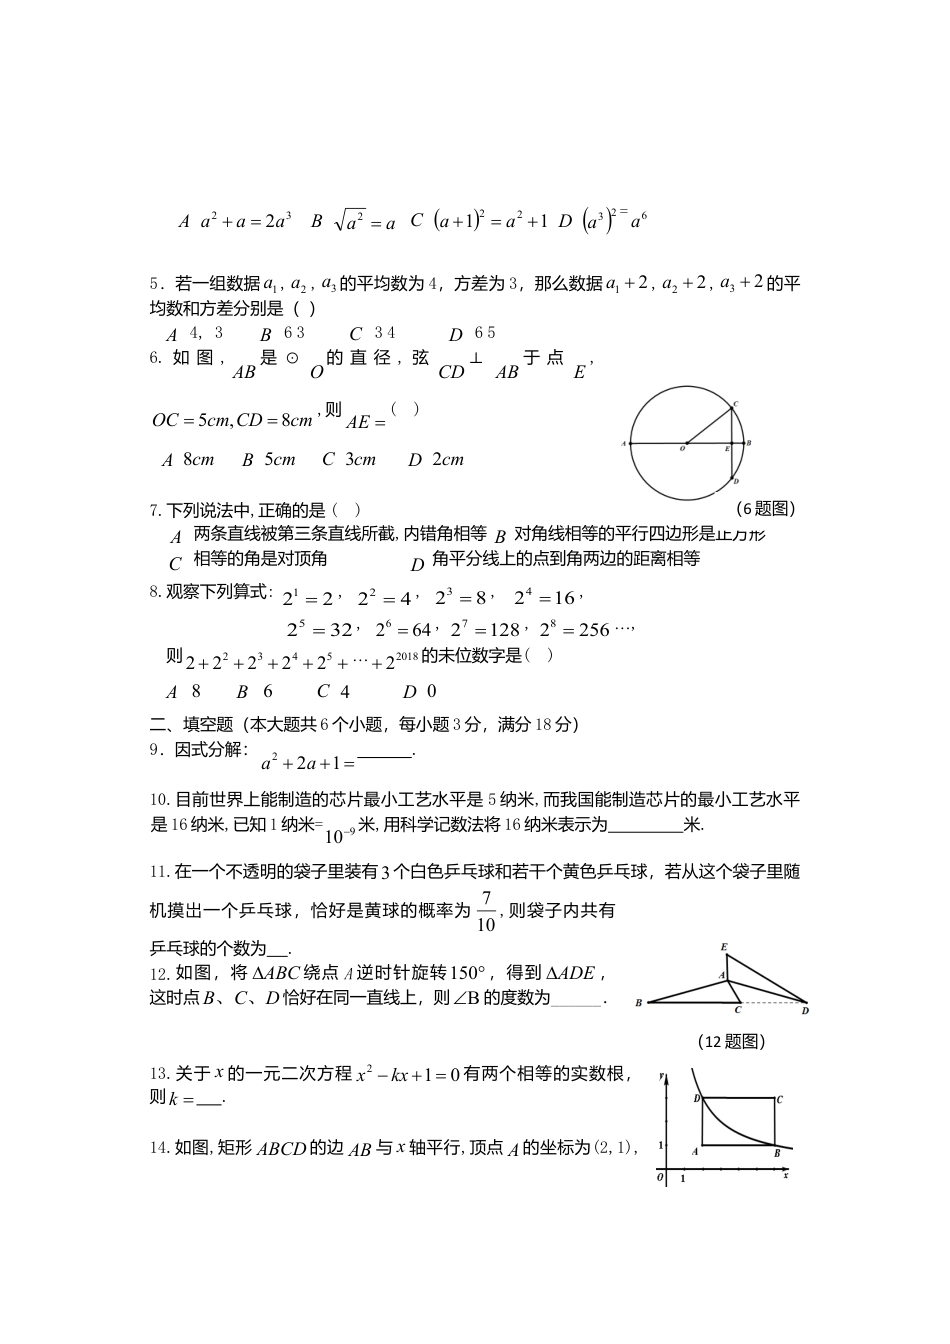 A a²+a=2a³ B √a²=a C (a+1)²=a²+1 D (a³)²=a⁶
5.若一组数据a₁,a₂,a₃的平均数为4，方差为3，那么数据a₁+2,a₂+2,a₃+2的平
均数和方差分别是（ ）
A 4，3 B 6 3 C 3 4 D 6 5
6.如图,AB是⊙O的直径,弦CD⊥AB于点E,
OC=5cm,CD=8cm,则AE=( )
A 8cm B 5cm C 3cm D 2cm
A O E B C D
(6题图)
7.下列说法中,正确的是( )
A 两条直线被第三条直线所截,内错角相等 B 对角线相等的平行四边形是正方形
C 相等的角是对顶角 D 角平分线上的点到角两边的距离相等
8.观察下列算式:2¹=2,2²=4,2³=8,2⁴=16,
2⁵=32,2⁶=64,2⁷=128,2⁸=256…,
则2+2²+2³+2⁴+2⁵+⋯+2²⁰¹⁸的未位数字是( )
A 8 B 6 C 4 D 0
二、填空题（本大题共6个小题，每小题3分，满分18分）
9.因式分解：a²+2a+1=______.
10.目前世界上能制造的芯片最小工艺水平是5纳米,而我国能制造芯片的最小工艺水平
是16纳米,已知1纳米=10⁻⁹米,用科学记数法将16纳米表示为________米.
11.在一个不透明的袋子里装有3个白色乒乓球和若干个黄色乒乓球，若从这个袋子里随
机摸出一个乒乓球，恰好是黄球的概率为7/10,则袋子内共有
乒乓球的个数为__.
12.如图，将ΔABC绕点A逆时针旋转150°，得到ΔADE，
这时点B、C、D恰好在同一直线上，则∠B的度数为______.
E A B C D
(12题图)
13.关于x的一元二次方程x²−kx+1=0有两个相等的实数根，
则k=___.
14.如图,矩形ABCD的边AB与x轴平行,顶点A的坐标为(2,1),
y D C 1 A B O 1 x